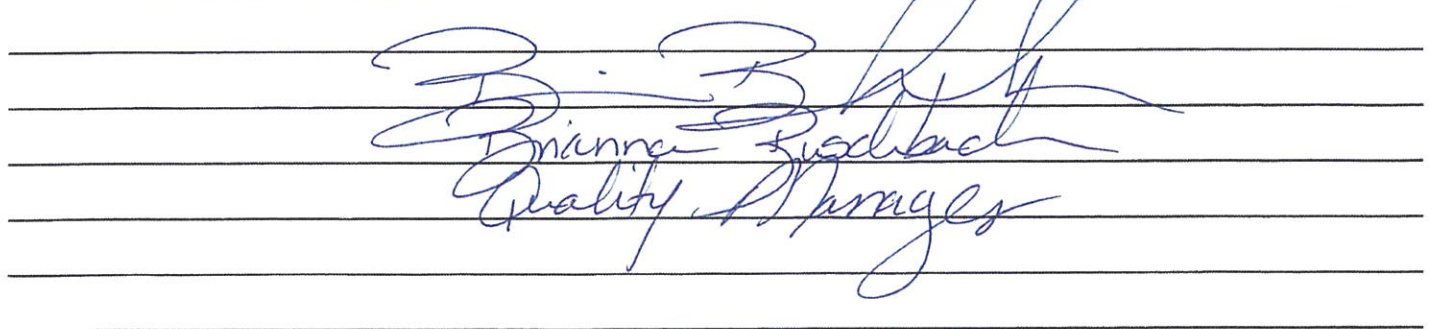 Brianna Buschbach
Quality Manager